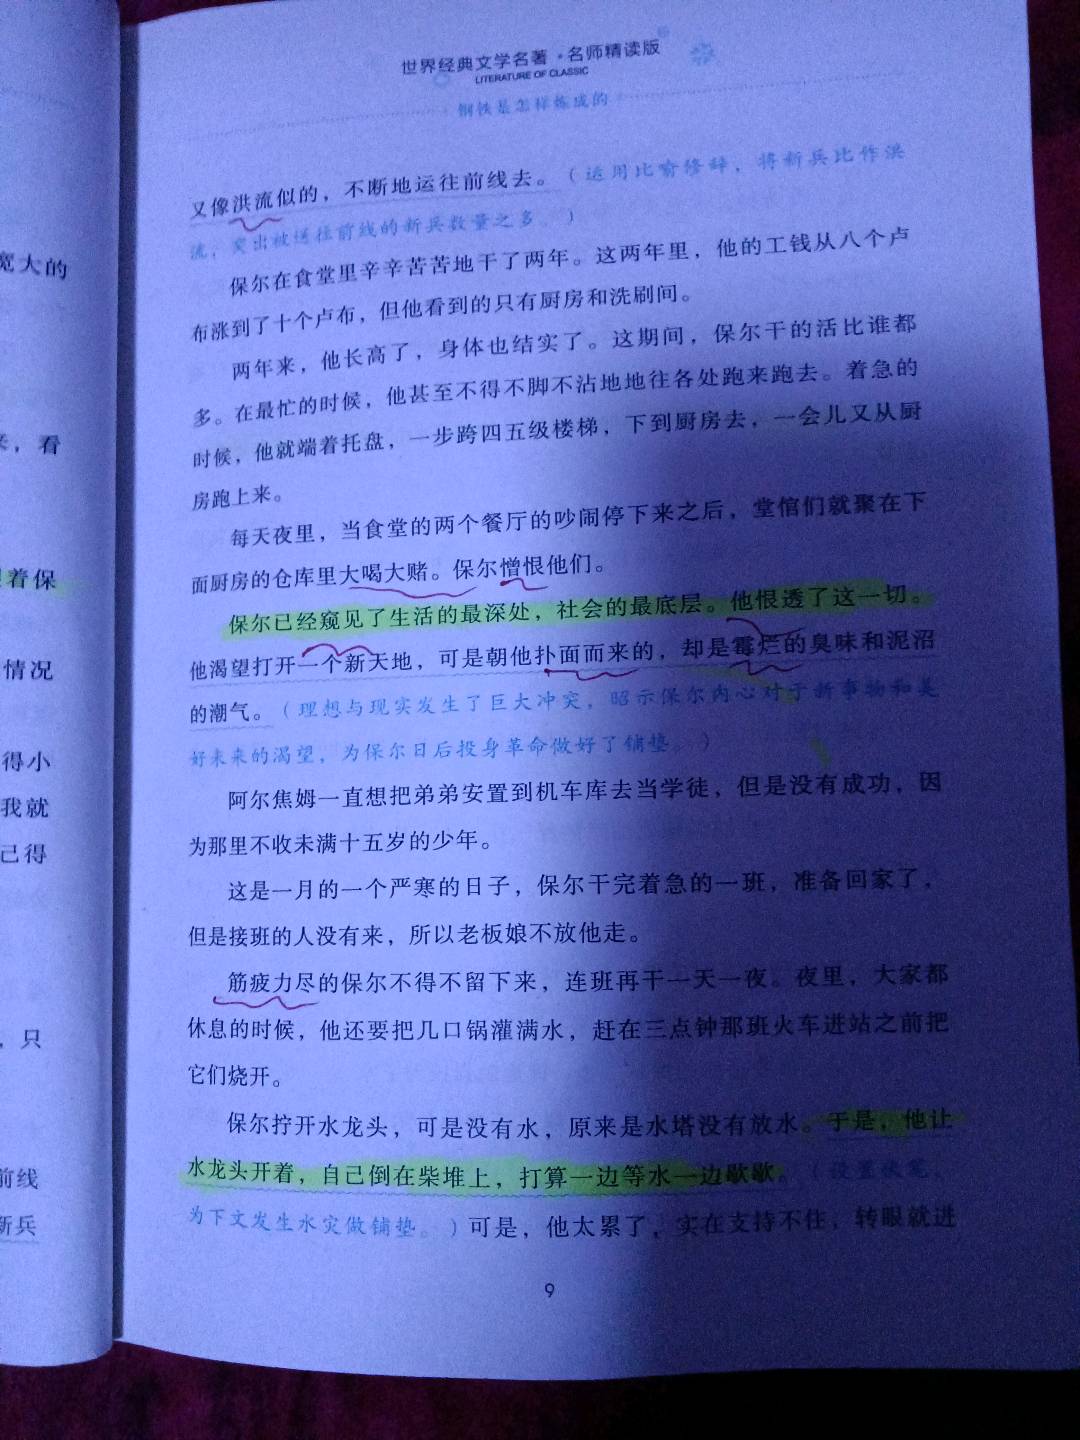 世界经典文学名著·名师精读版
LITERATURE OF CLASSIC
钢铁是怎样炼成的
又像洪流似的，不断地运往前线去。（运用比喻修辞，将新兵比作洪
流，突出被送往前线的新兵数量之多。）
保尔在食堂里辛辛苦苦地干了两年。这两年里，他的工钱从八个卢
布涨到了十个卢布，但他看到的只有厨房和洗刷间。
两年来，他长高了，身体也结实了。这期间，保尔干的活比谁都
多。在最忙的时候，他甚至不得不脚不沾地地往各处跑来跑去。着急的
时候，他就端着托盘，一步跨四五级楼梯，下到厨房去，一会儿又从厨
房跑上来。
每天夜里，当食堂的两个餐厅的吵闹停下来之后，堂倌们就聚在下
面厨房的仓库里大喝大赌。保尔憎恨他们。
保尔已经窥见了生活的最深处，社会的最底层。他恨透了这一切。
他渴望打开一个新天地，可是朝他扑面而来的，却是霉烂的臭味和泥沼
的潮气。（理想与现实发生了巨大冲突，昭示保尔内心对于新事物和美
好未来的渴望，为保尔日后投身革命做好了铺垫。）
阿尔焦姆一直想把弟弟安置到机车库去当学徒，但是没有成功，因
为那里不收未满十五岁的少年。
这是一月的一个严寒的日子，保尔干完着急的一班，准备回家了，
但是接班的人没有来，所以老板娘不放他走。
筋疲力尽的保尔不得不留下来，连班再干一天一夜。夜里，大家都
休息的时候，他还要把几口锅灌满水，赶在三点钟那班火车进站之前把
它们烧开。
保尔拧开水龙头，可是没有水，原来是水塔没有放水。于是，他让
水龙头开着，自己倒在柴堆上，打算一边等水一边歇歇。（设置伏笔，
为下文发生水灾做铺垫。）可是，他太累了，实在支持不住，转眼就进
9
宽大的
来，看
着保
情况
得小
我就
己得
，只
前线
新兵